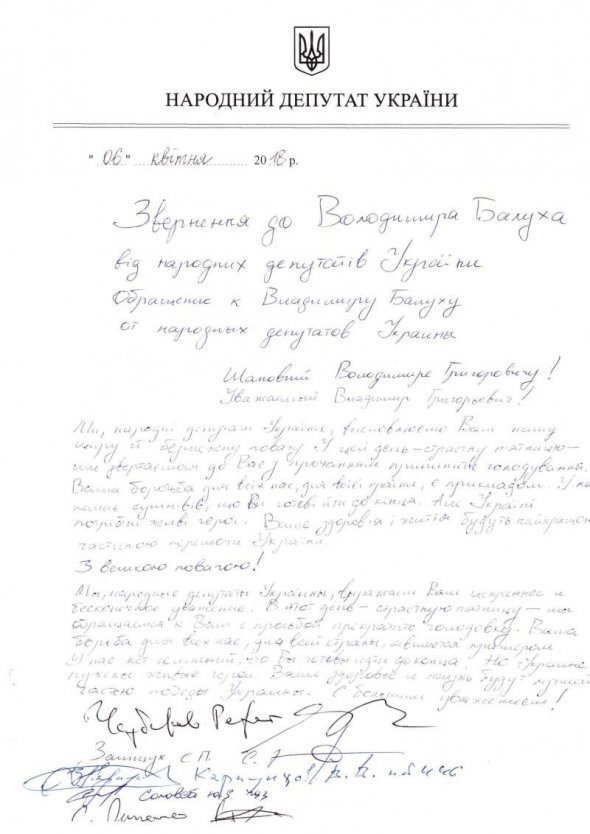 НАРОДНИЙ ДЕПУТАТ УКРАЇНИ
"06" квітня 2018 р.
Звернення до Володимира Балуха
від народних депутатів України
Обращение к Владимиру Балуху
от народных депутатов Украины
Шановний Володимире Григоровичу!
Уважаемый Владимир Григорьевич!
Ми, народні депутати України, висловлюємо Вам нашу
щиру й безмежну повагу. У цей день – страсну п'ятницю –
ми звертаємось до Вас з проханням припинити голодування.
Ваша боротьба для всіх нас, для всієї країни, є прикладом. У нас
немає сумнівів, що Ви готові йти до кінця. Але Україні
потрібні живі герої. Ваше здоров'я і життя будуть найкращою
частиною перемоги України.
З великою повагою!
Мы, народные депутаты Украины, выражаем Вам искреннее и
бесконечное уважение. В этот день – страстную пятницу – мы
обращаемся к Вам с просьбой прекратить голодовку. Ваша
борьба для всех нас, для всей страны, является примером.
У нас нет сомнений, что Вы готовы идти до конца. Но Украине
нужны живые герои. Ваше здоровье и жизнь будут лучшей
частью победы Украины. С большим уважением!
Чубаров Рефат
Заліщук С.П.